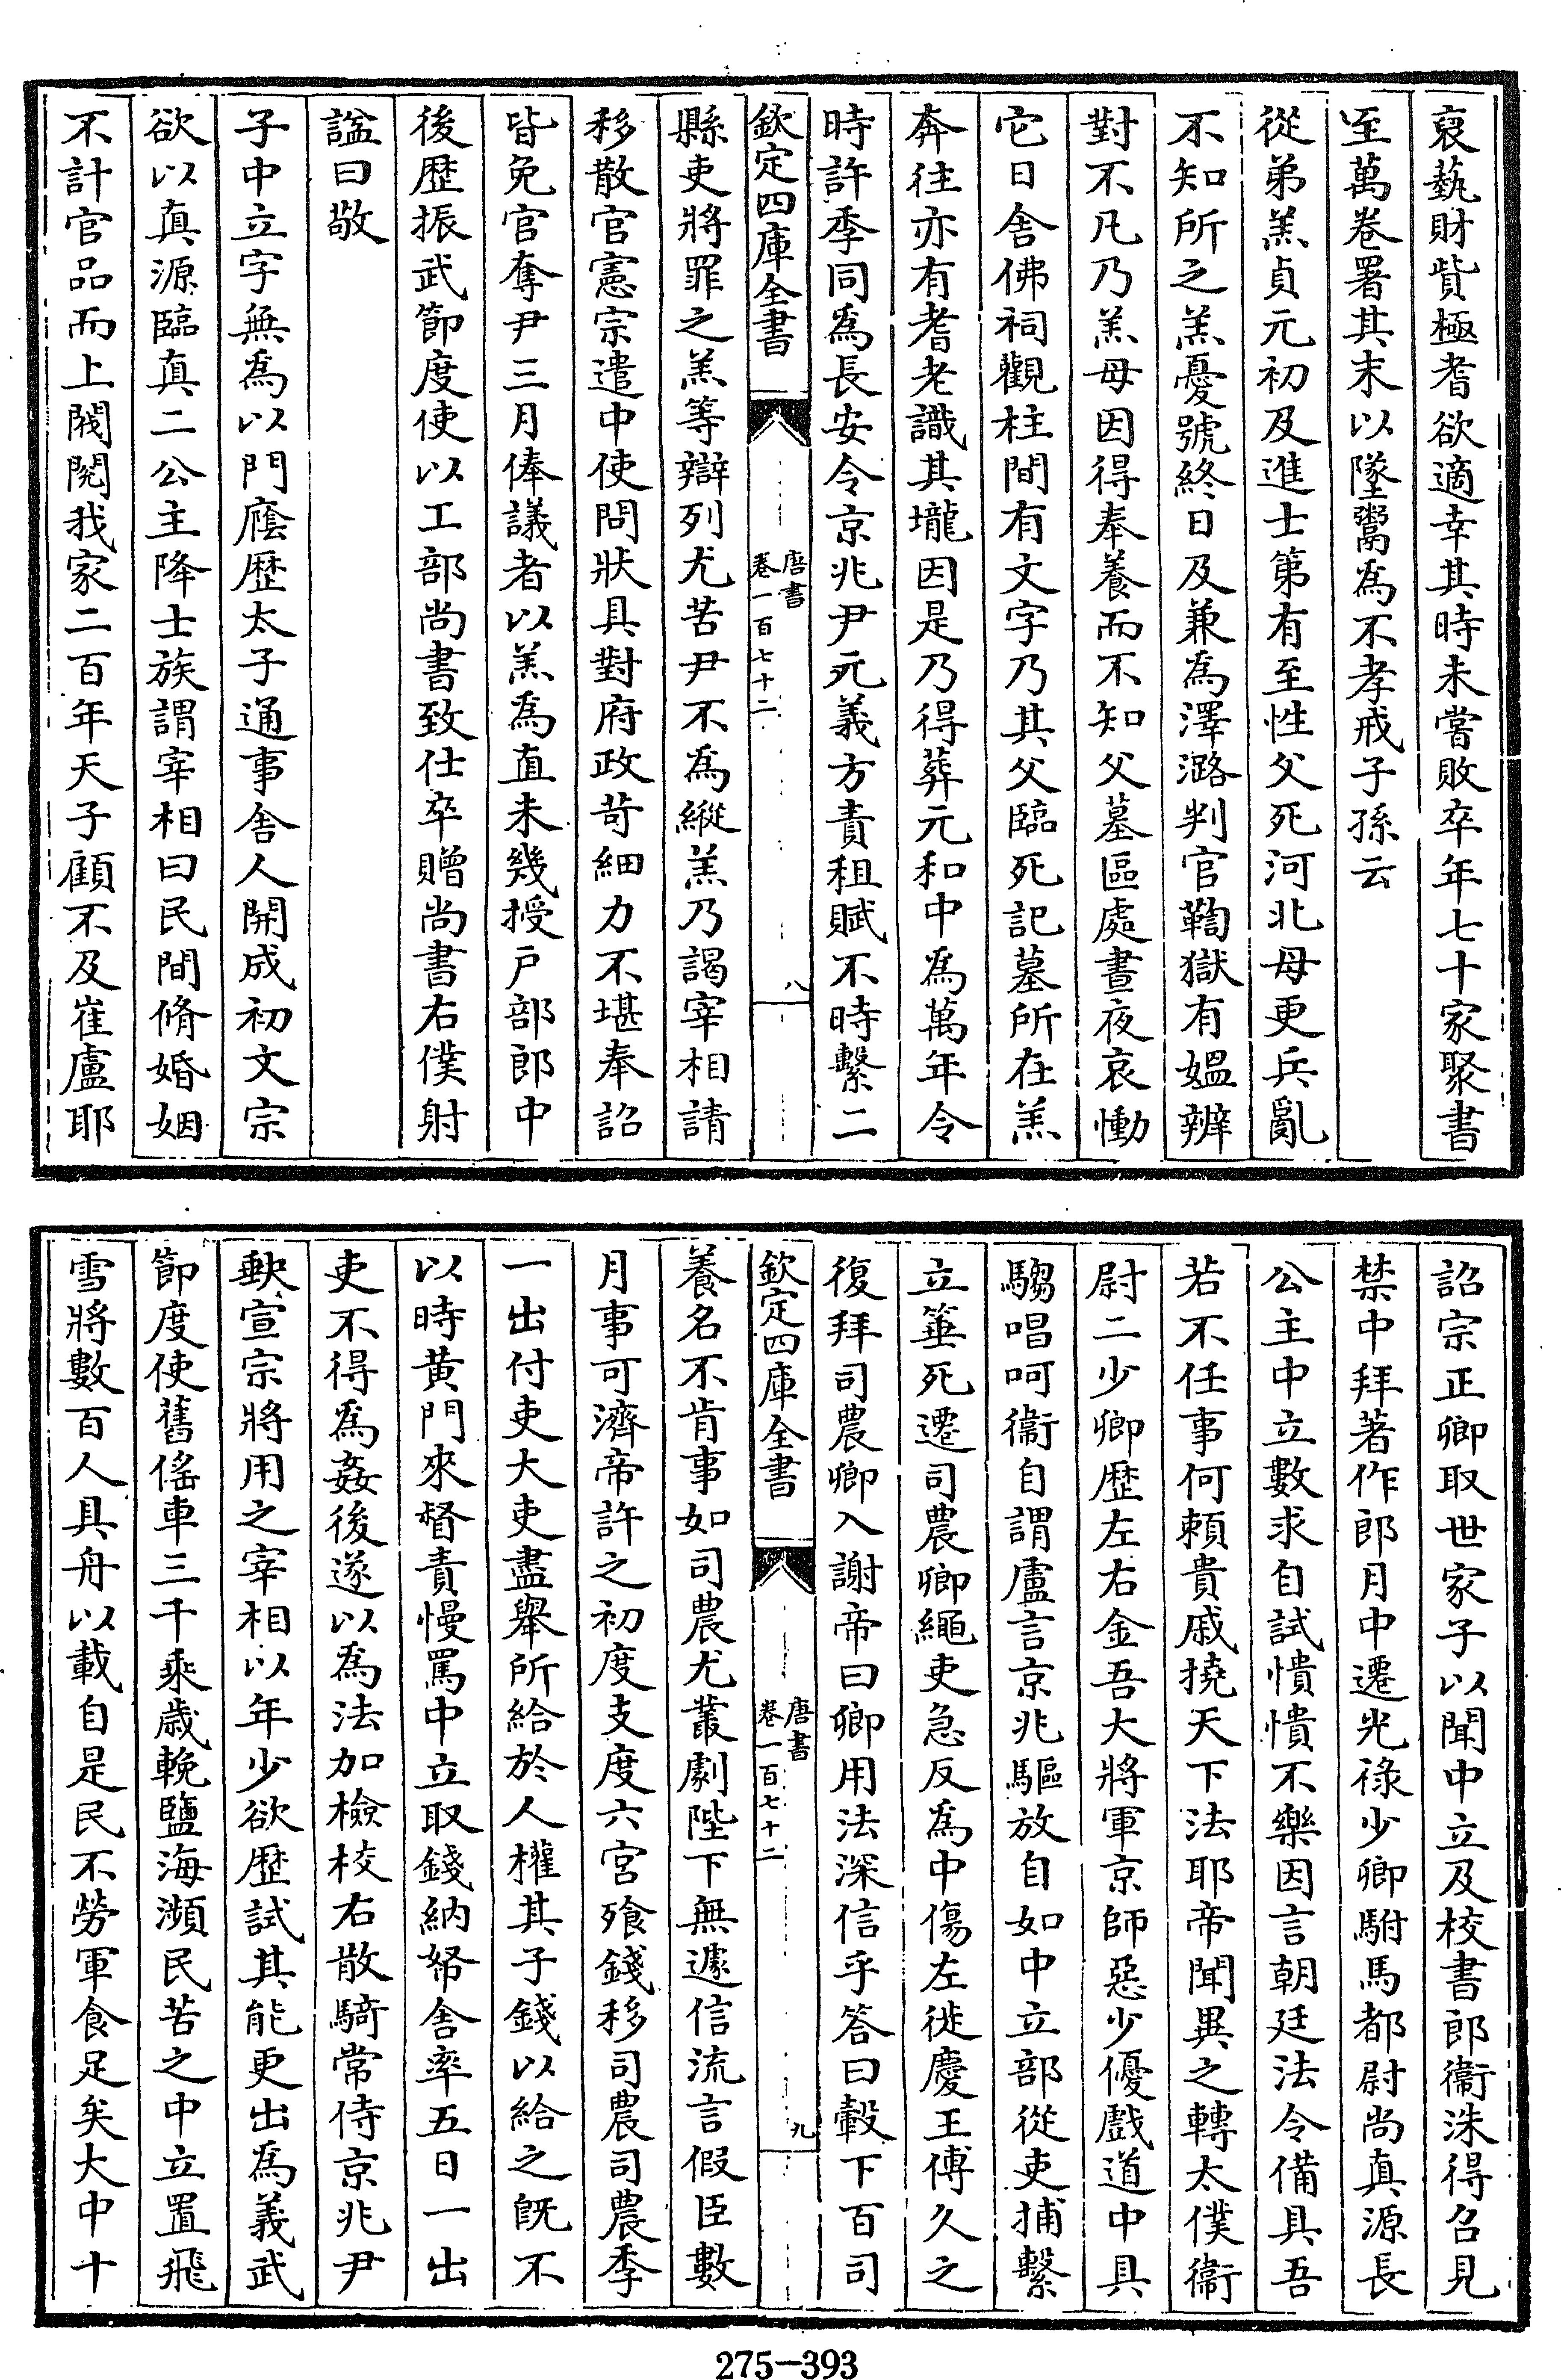 裒藝財貲極耆欲適幸其時未嘗敗卒年七十家聚書
至萬卷署其末以墜鬻為不孝戒子孫云
從弟羔貞元初及進士第有至性父死河北母更兵亂
不知所之羔憂號終日及兼為澤潞判官鞫獄有媼辨
對不凡乃羔母因得奉養而不知父墓區處晝夜哀慟
它日舍佛祠觀柱間有文字乃其父臨死記墓所在羔
奔往亦有耆老識其壠因是乃得葬元和中為萬年令
時許季同為長安令京兆尹元義方責租賦不時繫二
欽定四庫全書
唐書
卷一百七十二
八
縣吏將罪之羔等辯列尤苦尹不為縱羔乃謁宰相請
移散官憲宗遣中使問狀具對府政苛細力不堪奉詔
皆免官奪尹三月俸議者以羔為直未幾授戶部郎中
後歷振武節度使以工部尚書致仕卒贈尚書右僕射
諡曰敬
子中立字無為以門廕歷太子通事舍人開成初文宗
欲以真源臨真二公主降士族謂宰相曰民間脩婚姻
不計官品而上閥閱我家二百年天子顧不及崔盧耶
詔宗正卿取世家子以聞中立及校書郎衞洙得召見
禁中拜著作郎月中遷光祿少卿駙馬都尉尚真源長
公主中立數求自試憒憒不樂因言朝廷法令備具吾
若不任事何賴貴戚撓天下法耶帝聞異之轉太僕衞
尉二少卿歷左右金吾大將軍京師惡少優戲道中具
騶唱呵衞自謂盧言京兆驅放自如中立部從吏捕繫
立箠死遷司農卿繩吏急反為中傷左徙慶王傅久之
復拜司農卿入謝帝曰卿用法深信乎答曰轂下百司
欽定四庫全書
唐書
卷一百七十二
九
養名不肯事如司農尤叢劇陛下無遽信流言假臣數
月事可濟帝許之初度支度六宮飱錢移司農司農季
一出付吏大吏盡舉所給於人權其子錢以給之既不
以時黃門來督責慢罵中立取錢納帑舍率五日一出
吏不得為姦後遂以為法加檢校右散騎常侍京兆尹
缺宣宗將用之宰相以年少欲歷試其能更出為義武
節度使舊傜車三千乘歲輓鹽海瀕民苦之中立置飛
雪將數百人具舟以載自是民不勞軍食足矣大中十
275-393